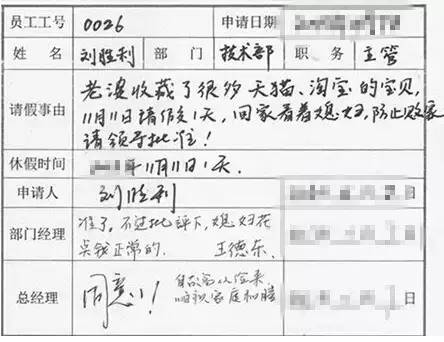 员工工号 0026 申请日期
姓名 刘胜利 部门 技术部 职务 主管
请假事由
老婆收藏了很多天猫、淘宝的宝贝,
11月11日请假1天,回家看着媳妇,防止败家
请领导批准!
休假时间 11月11日1天.
申请人 刘胜利 日
部门经理
准了,不过批评下,媳妇花
点钱正常的. 王德东. 日
总经理
同意! 日